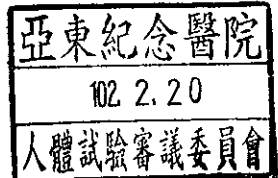 亞東紀念醫院
102. 2. 20
人體試驗審議委員會